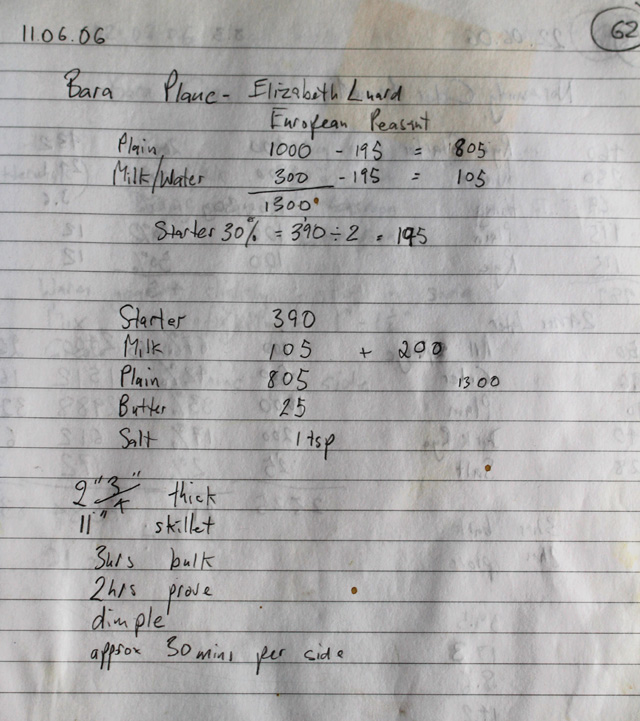 11.06.06
62
Bara Planc - Elizabeth Luard
European Peasant
Plain 1000 - 195 = 805
Milk/Water 300 - 195 = 105
1300
Starter 30% = 390 ÷ 2 = 195
Starter 390
Milk 105 + 200
Plain 805 1300
Butter 25
Salt 1 tsp
2" 3/4" thick
11" skillet
3hrs bulk
2hrs prove
dimple
approx 30 mins per side